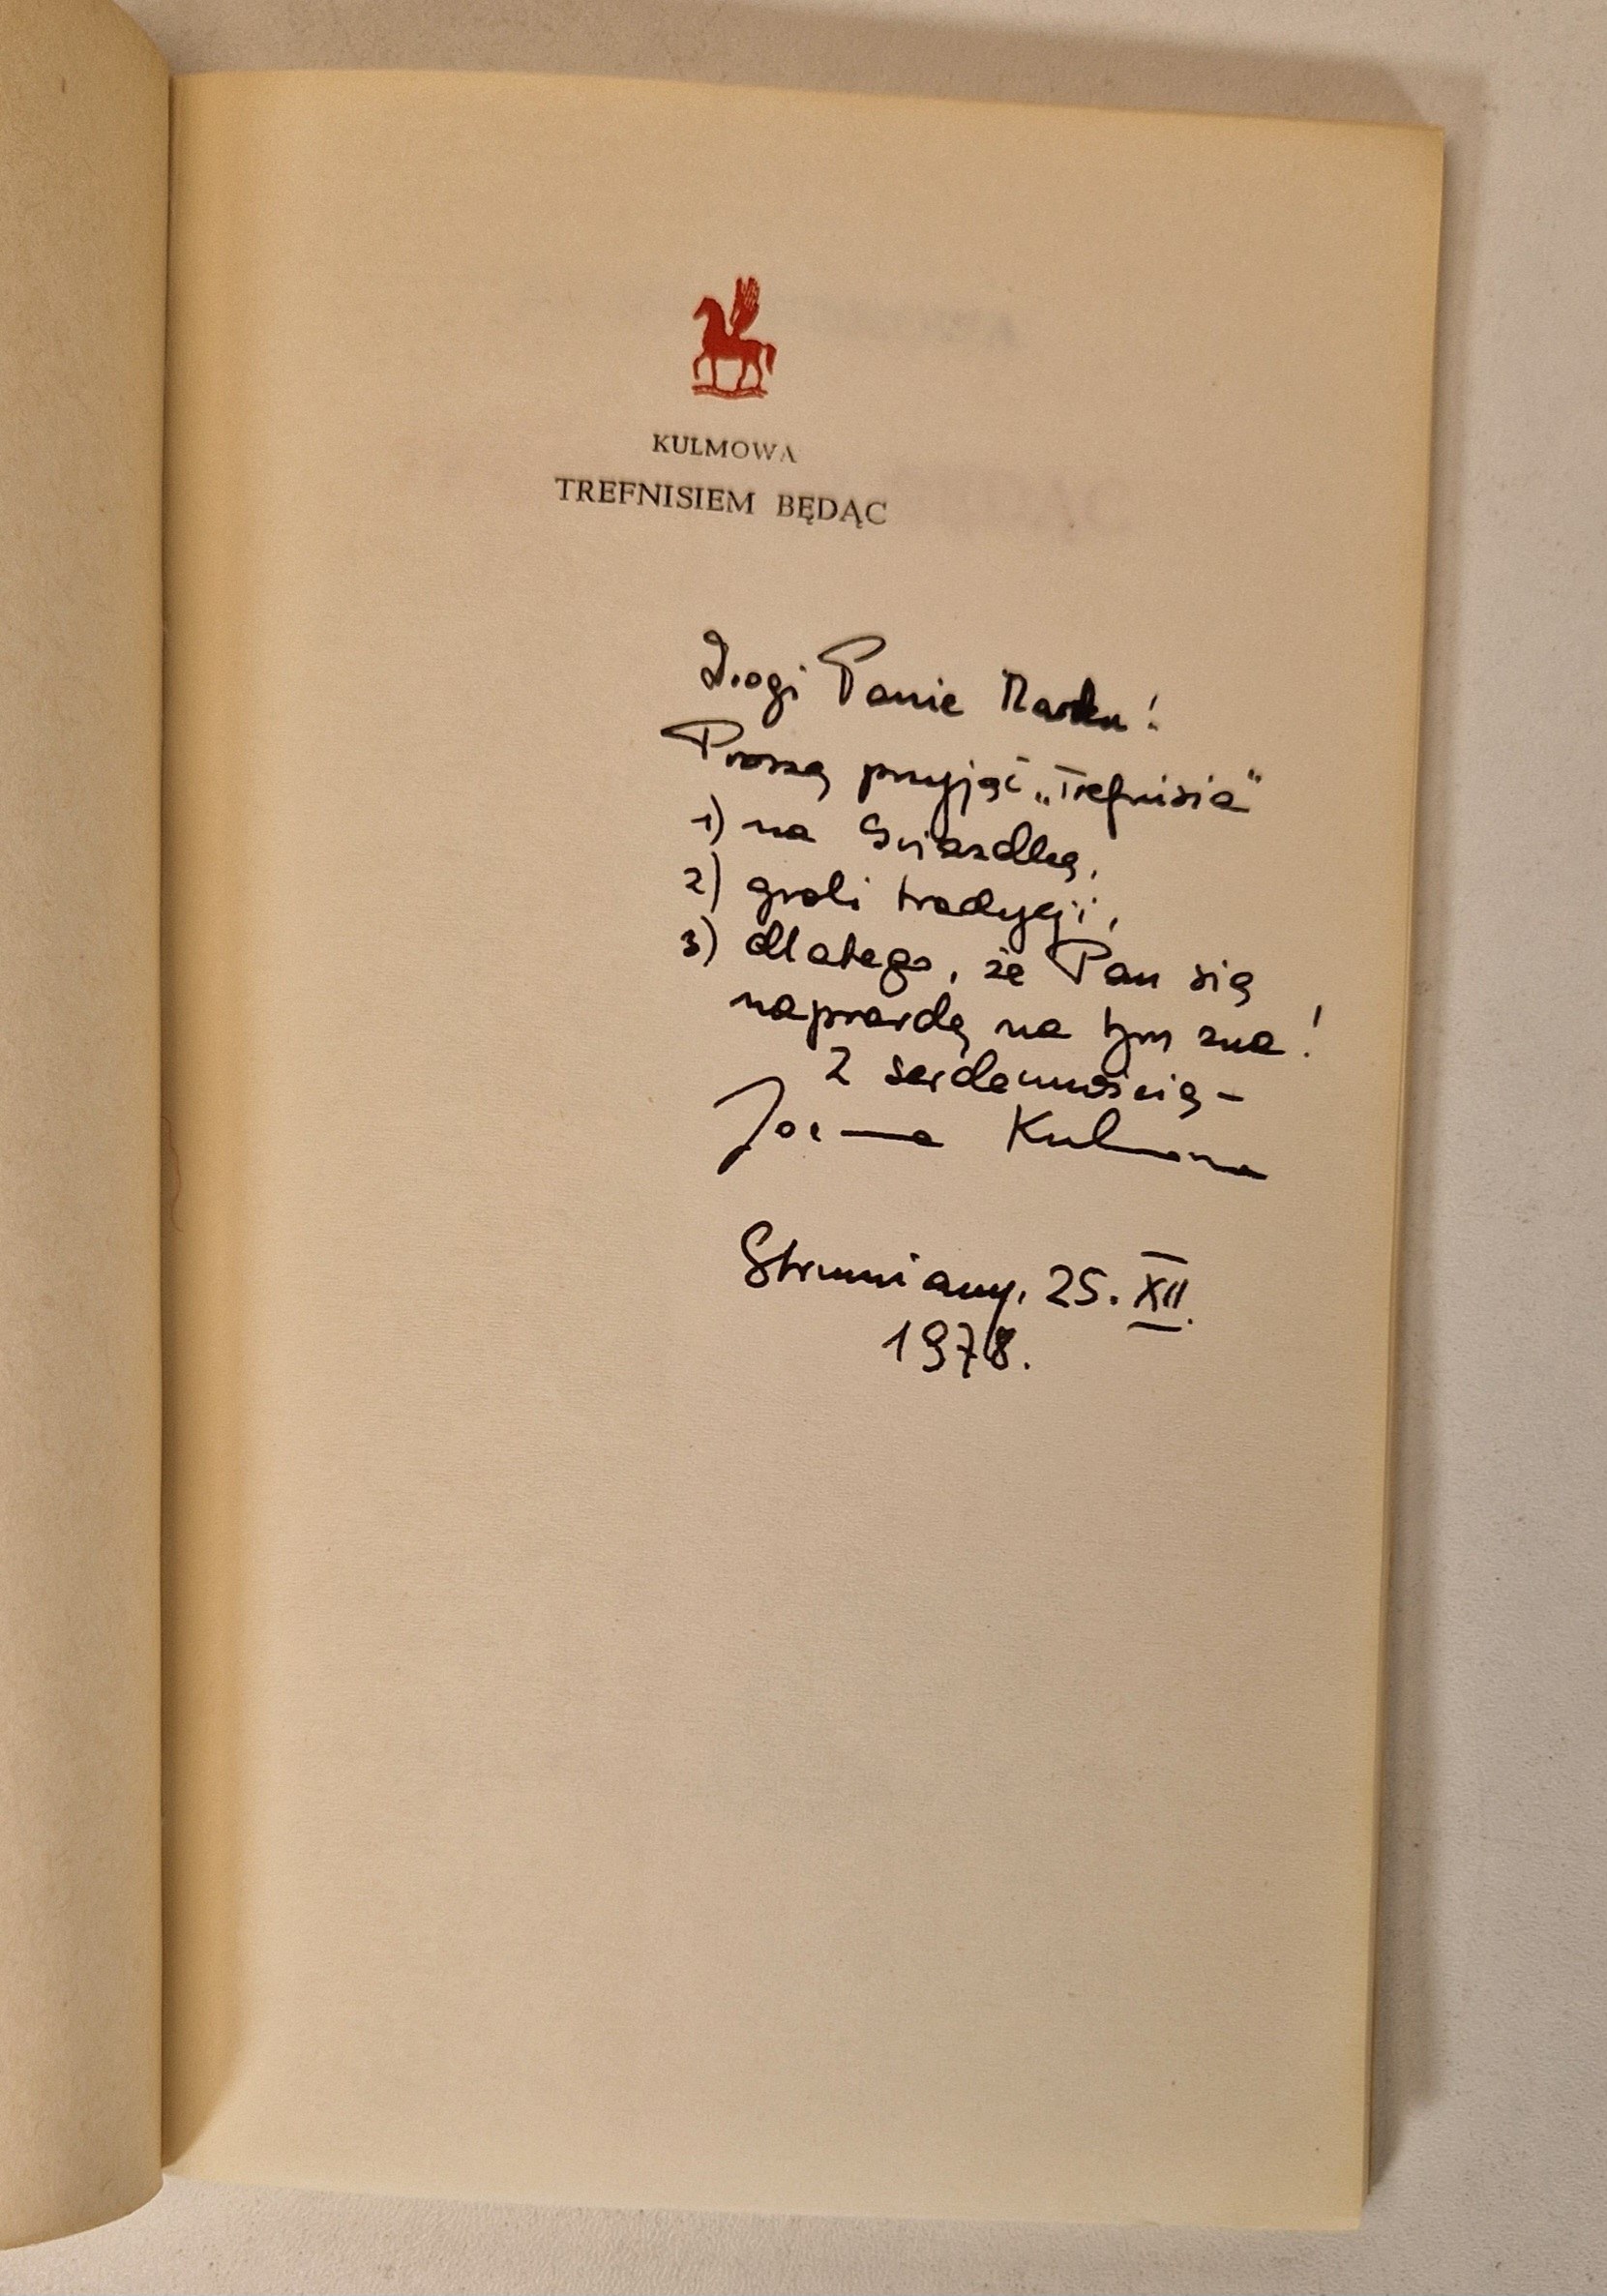 KULMOWA
TREFNISIEM BĘDĄC
Drogi Panie Marku!
Proszę przyjąć „Trefnisia"
1) na Gwiazdkę,
2) gwoli tradycji,
3) dlatego, że Pan się
naprawdę na tym zna!
Z serdecznością –
Joanna Kulmowa
Strumiany, 25. XII.
1978.